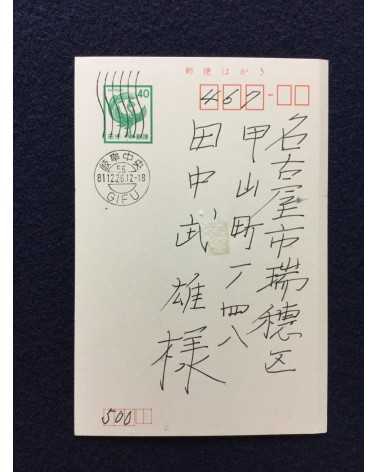 郵便はがき
40
467
岐阜中央
56
81.12.26.12-18
GIFU
名古屋市瑞穂区
甲山町一ノ四八
田中武雄様
500